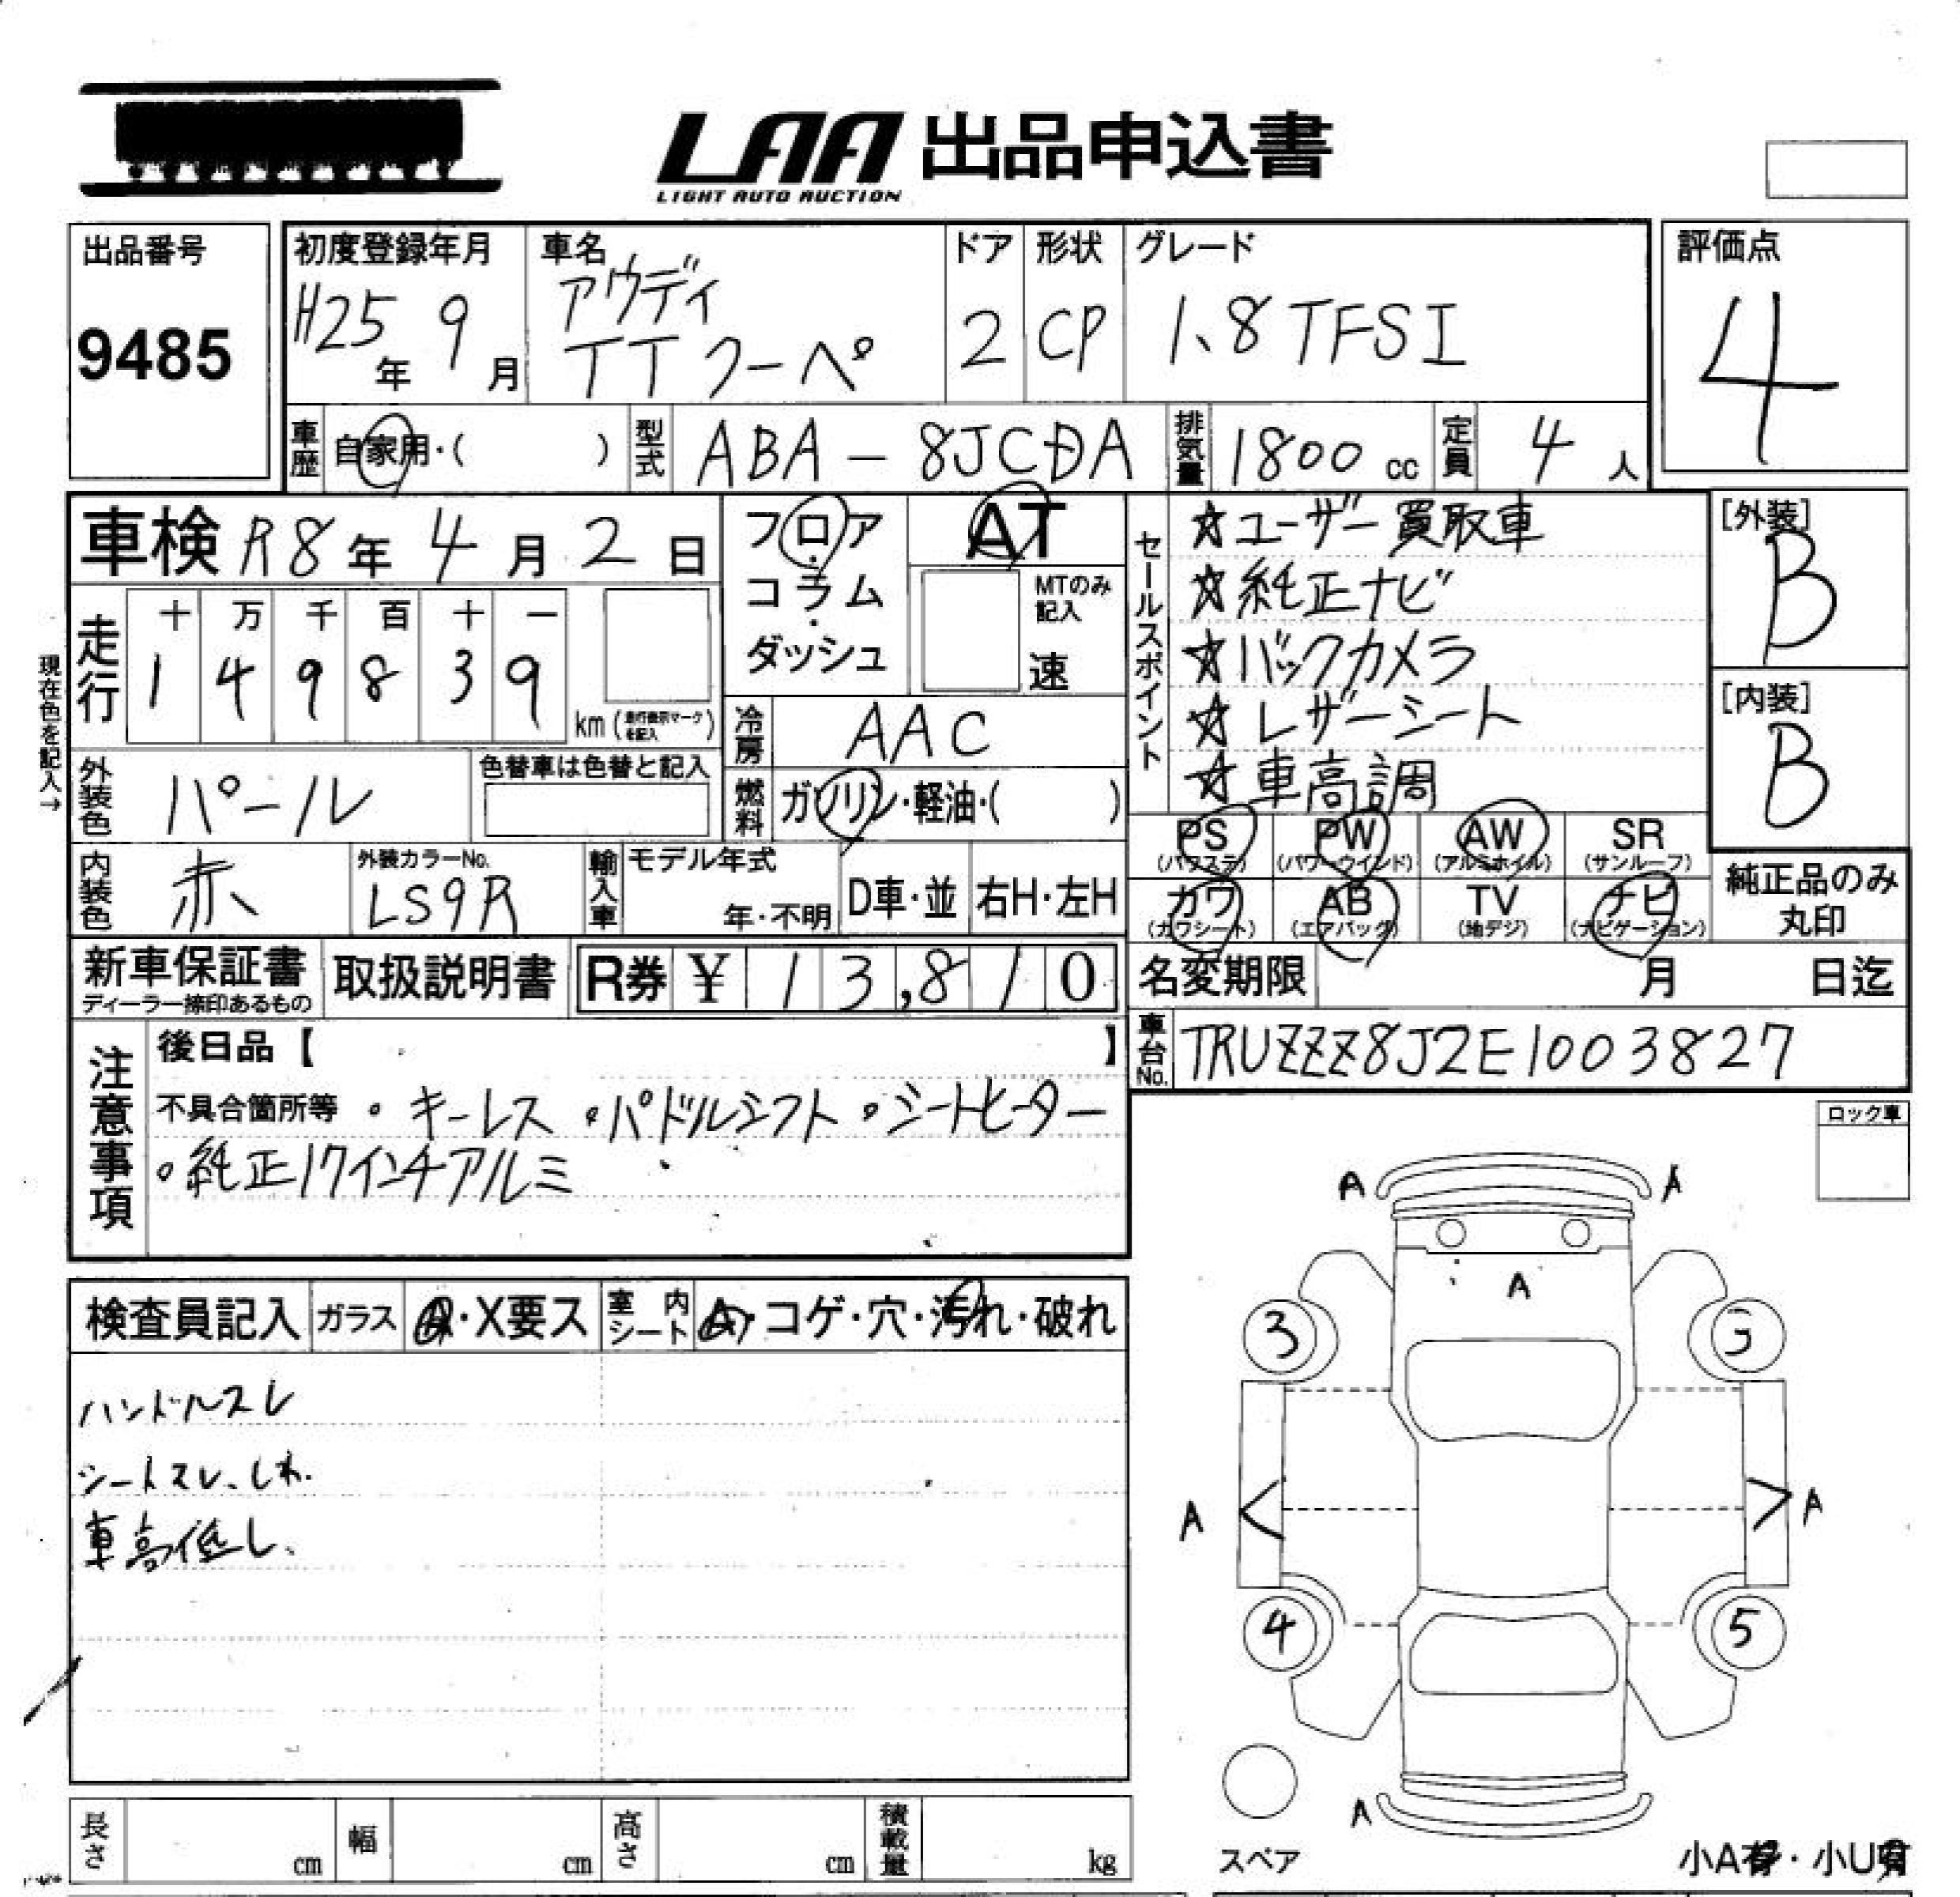 LAA 出品申込書
LIGHT AUTO AUCTION
出品番号
9485
初度登録年月
H25年 9月
車名
アウディ
TTクーペ
ドア
2
形状
CP
グレード
1.8TFSI
評価点
4
車歴 自家用・( )
型式 ABA-8JCDA
排気量 1800cc
定員 4人
車検 R8年 4月 2日
フロア・
コラム・
ダッシュ
AT
MTのみ記入
速
走行
十 万 千 百 十 一
1 4 9 8 3 9 km (走行表示マークを記入)
現在色を記入→
冷房 AAC
燃料 ガソリン・軽油・( )
外装色 パール
色替車は色替と記入
内装色 赤
外装カラーNo.
LS9R
輸入車
モデル年式
年・不明
D車・並
右H・左H
セールスポイント
☆ユーザー買取車
☆純正ナビ
☆バックカメラ
☆レザーシート
☆車高調
[外装]
B
[内装]
B
PS (パワステ)
PW (パワーウインド)
AW (アルミホイル)
SR (サンルーフ)
カワ (カワシート)
AB (エアバッグ)
TV (地デジ)
ナビ (ナビゲーション)
純正品のみ丸印
新車保証書
ディーラー捺印あるもの
取扱説明書
R券 ¥13,810
名変期限 月 日迄
車台No. TRUZZZ8J2E1003827
注意事項
後日品【 】
不具合箇所等 ・キーレス ・パドルシフト ・シートヒーター
・純正17インチアルミ
ロック車
検査員記入
ガラス ・X要ス
室内シート A・コゲ・穴・汚れ・破れ
ハンドルスレ
シートスレ、しわ.
車高低し、
A A
A
3
A A
4 5
A
スペア
小A有・小U有
長さ cm
幅 cm
高さ cm
積載量 kg